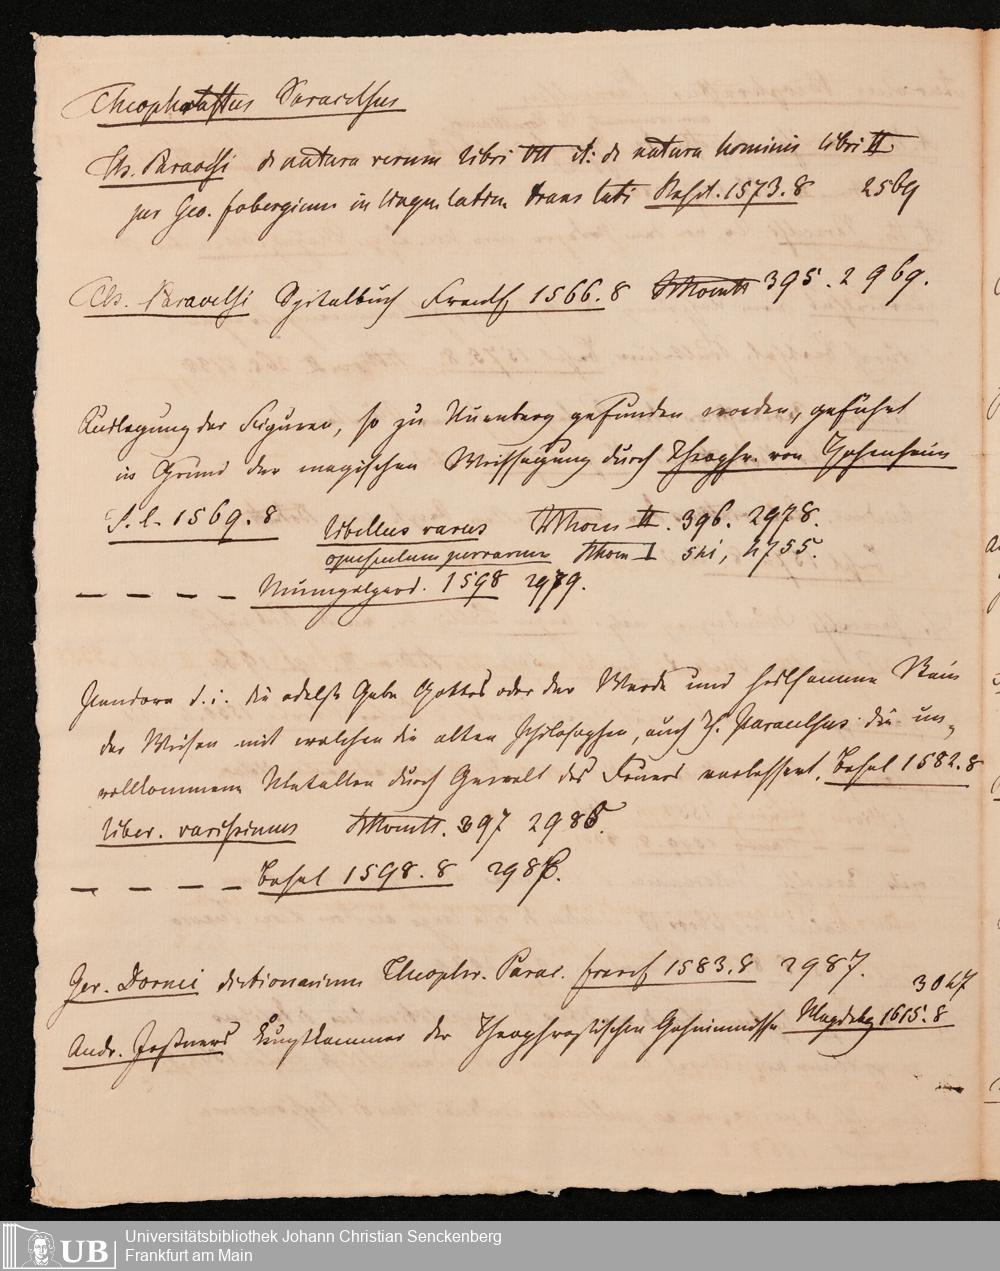 Theophrastus Paracelsus
Th. Paracelsi de natura rerum libri VII it: de natura hominis libri II.
per Geo. fobergium in linguam latin translati Basil. 1573. 8 2569
Th. Paracelsi Spitalbuch Franff 1566. 8 395. 2969.
Auslegung der Figuren, so zu Nürnberg gefunden worden, geführt
in Grund der magischen Weissagung durch Theophr. von Hohenheim
S. l. 1569. 8 libellus rarus II. 396. 2978.
opusculum perrarum I 541, 4755.
– – – – Mümpelgard. 1598 2979.
Pandora d. i. die edelst Gabe Gottes oder der Werde und heilsamme Stein
der Weisen mit welchen die alten Philosophen, auch Th. Paracelsus die un-
vollkommene Metallen durch Gewalt des Feuers verbessert. Basel 1582. 8
liber. rarissimus 397 2985.
– – – – Basel 1598. 8 2986.
Ger. Dornei dictionarium Theophr. Parac. francf 1583. 8 2987.
3047
Andr. Kunstkammer der Theophrastischen Geheimnisse Magdebg 1615. 8
UB
Universitätsbibliothek Johann Christian Senckenberg
Frankfurt am Main